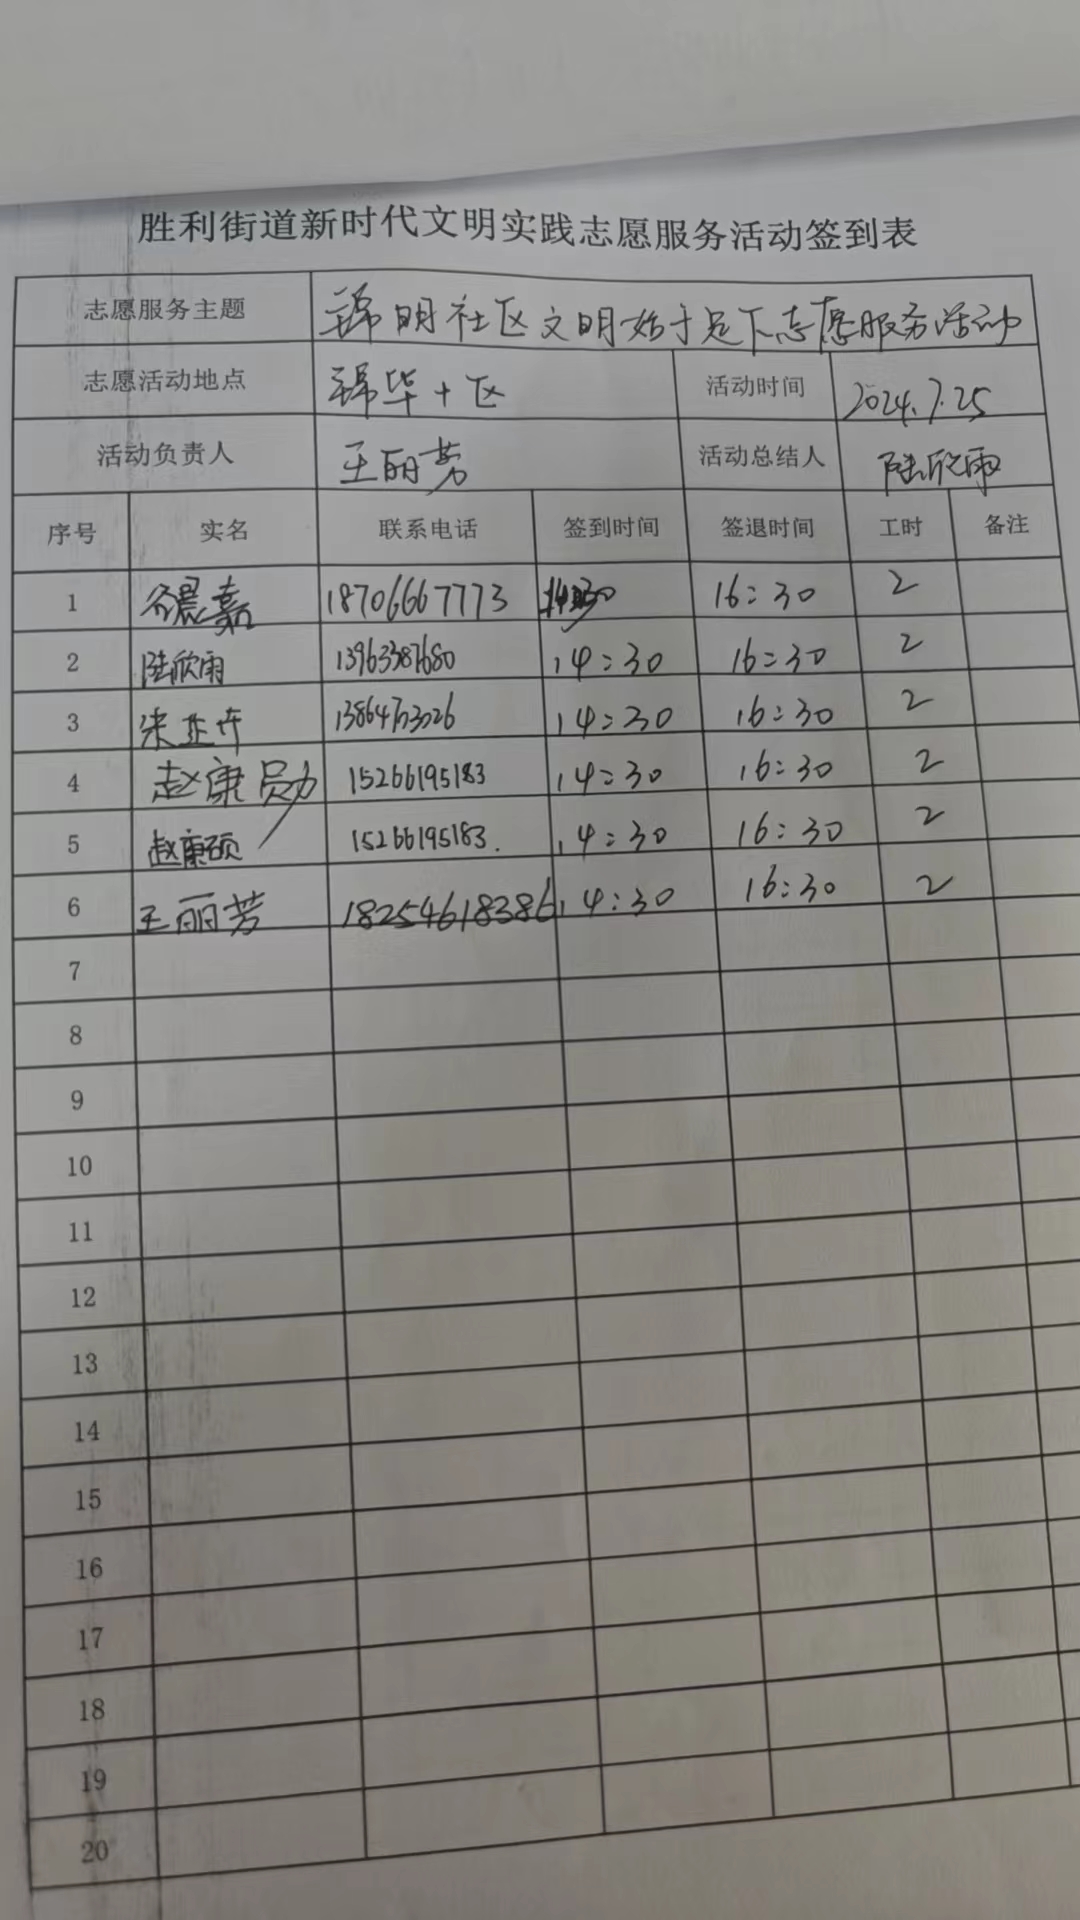 胜利街道新时代文明实践志愿服务活动签到表
志愿服务主题 锦明社区文明始于足下志愿服务活动
志愿活动地点 锦华十区 活动时间 2024.7.25
活动负责人 王丽芳 活动总结人 陆欣雨
序号 实名 联系电话 签到时间 签退时间 工时 备注
1 谷晨嘉 18706667773 16:30 2
2 陆欣雨 13963387680 14:30 16:30 2
3 14:30 16:30 2
4 赵康员力 15266195183 14:30 16:30 2
5 赵康硕 15266195183. 14:30 16:30 2
6 王丽芳 18254618386 14:30 16:30 2
7
8
9
10
11
12
13
14
15
16
17
18
19
20